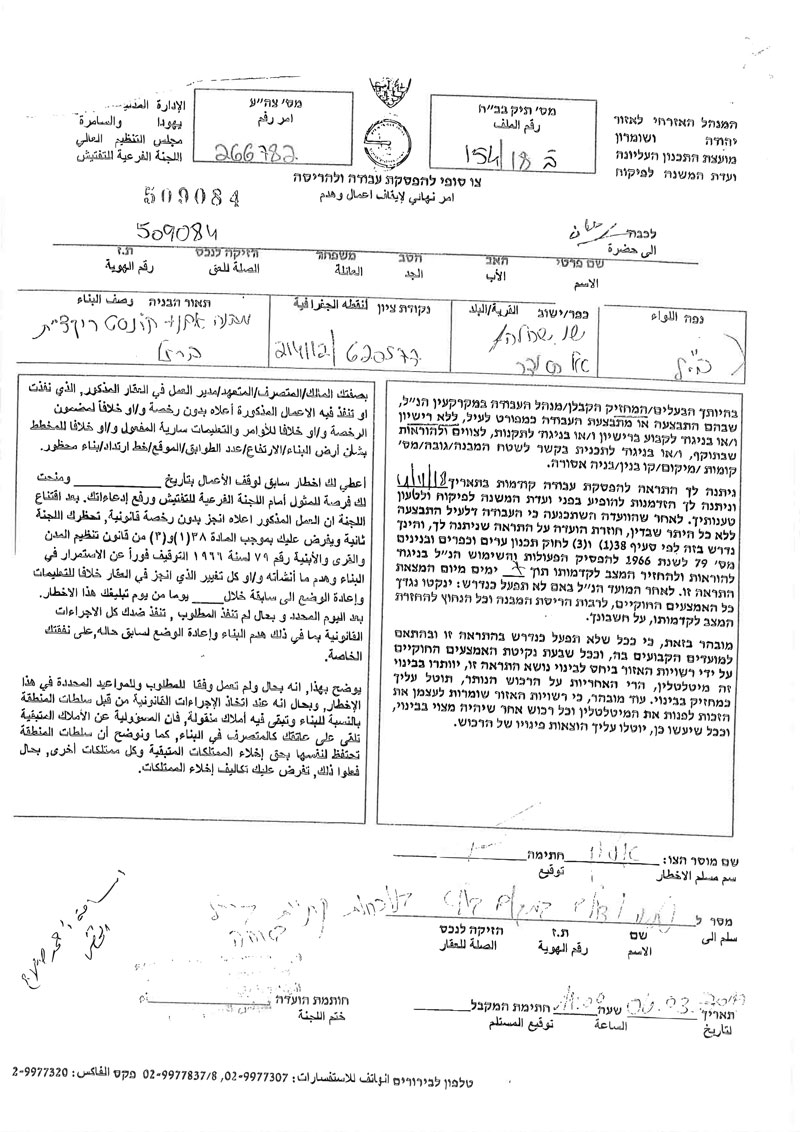 המנהל האזרחי לאזור
יהודה ושומרון
מועצת התכנון העליונה
ועדת המשנה לפיקוח
מס' תיק בב"ח
رقم الملف
ב 154/18
מס' צה"ע
امر رقم
266782
الإدارة
يهودا والسامرة
مجلس التنظيم العالي
اللجنة الفرعية للتفتيش
צו סופי להפסקת עבודה ולהריסה
امر نهائي لإيقاف اعمال وهدم
509084
לכבוד
الى حضرة
509084
שם פרטי האב הסב משפחה הזיקה לנכס ת.ז
الاسم الأب الجد العائلة الصلة للحق رقم الهوية
נפה اللواء
כפר/ישוב القرية/البلد
נקודת ציון لنقطه الجغرافية
תאור הבניה وصف البناء
620577
214112
ברזל
בהיותך הבעלים/המחזיק הקבלן/מנהל העבודה במקרקעין הנ"ל,
שבהם התבצעה או מתבצעת העבודה כמפורט לעיל, ללא רישיון
ו/או בניגוד לקבוע ברישיון ו/או בניגוד לתקנות, לצווים ולהוראות
שבתוקף, ו/או בניגוד לתכנית בקשר לשטח המבנה/גובה/מס'
קומות/מיקום/קו בנין/בניה אסורה.
ניתנה לך התראה להפסקת עבודה קודמות בתאריך
וניתנה לך הזדמנות להופיע בפני ועדת המשנה לפיקוח ולטעון
טענותיך. לאחר שהוועדה השתכנעה כי העבודה דלעיל התבצעה
ללא כל היתר שבדין, חוזרת הועדה על התראה שניתנה לך, והינך
נדרש בזה לפי סעיף 38(1) ו(3) לחוק תכנון ערים וכפרים ובנינים
מס' 79 לשנת 1966 להפסיק הפעולות והשימוש הנ"ל בניגוד
להוראות ולהחזיר המצב לקדמותו תוך 7 ימים מיום המצאת
התראה זו. לאחר המועד הנ"ל באם לא תפעל כנדרש: ינקטו נגדך
כל האמצעים החוקיים, לרבות הריסת המבנה וכל הנחוץ להחזרת
המצב לקדמותו, על חשבונך.
מובהר בזאת, כי ככל שלא תפעל כנדרש בהתראה זו ובהתאם
למועדים הקבועים בה, וככל שבעת נקיטת האמצעים החוקיים
על ידי רשויות האזור ביחס לבינוי נושא התראה זו, יוותרו בבינוי
זה מיטלטלין, הרי האחריות על הרכוש הנותר, תוטל עליך
כמחזיק בבינוי. עוד מובהר, כי רשויות האזור שומרות לעצמן את
הזכות לפנות את המיטלטלין וכל רכוש אחר שיהיה מצוי בבינוי,
וככל שיעשו כן, יוטלו עליך הוצאות פינויו של הרכוש.
بصفتك المالك/المتصرف/المتعهد/مدير العمل في العقار المذكور, الذي نفذت
او تنفذ فيه الاعمال المذكورة أعلاه بدون رخصة و/او خلافاً لمضمون
الرخصة و/او خلافا للأوامر والتعليمات سارية المفعول و/او خلافا للمخطط
بشأن أرض البناء/الارتفاع/عدد الطوابق/الموقع/خط ارتداد/بناء محظور.
أعطي لك اخطار سابق لوقف الأعمال بتاريخ ومنحت
لك فرصة للمثول أمام اللجنة الفرعية للتفتيش ورفع إدعاءاتك. بعد اقتناع
اللجنة ان العمل المذكور اعلاه انجز بدون رخصة قانونية, تحظرك اللجنة
ثانية ويفرض عليك بموجب المادة ٣٨(١)و(٣) من قانون تنظيم المدن
والقرى والأبنية رقم ٧٩ لسنة ١٩٦٦ التوقيف فوراً عن الاستمرار في
البناء وهدم ما أنشأته و/او كل تغيير الذي انجز في العقار خلافا للتعليمات
وإعادة الوضع الى سابقة خلال يوما من يوم تبليغك هذا الاخطار.
بعد اليوم المحدد و بحال لم تنفذ المطلوب , تنفذ ضدك كل الاجراءات
القانونية بما في ذلك هدم البناء وإعادة الوضع لسابق حاله, على نفقتك
الخاصة.
يوضح بهذا, انه بحال ولم تعمل وفقا للمطلوب وللمواعيد المحددة في هذا
الإخطار, وبحال انه عند اتخاذ الإجراءات القانونية من قبل سلطات المنطقة
بالنسبة للبناء وتبقى فيه أملاك منقولة, فان المسؤولية عن الأملاك المتبقية
تلقى على عاتقك كالمتصرف في البناء, كما ونوضح أن سلطات المنطقة
تحتفظ لنفسها بحق إخلاء الممتلكات المتبقية وكل ممتلكات أخرى, بحال
فعلوا ذلك, تفرض عليك تكاليف إخلاء الممتلكات.
שם מוסר הצו: חתימה
سم مسلم الاخطار توقيع
מסר ל
سلم الى
שם ת.ז הזיקה לנכס
الاسم رقم الهوية الصلة للعقار
תאריך שעה חתימת המקבל
لتاريخ الساعة توقيع المستلم
חותמת הועדה
ختم اللجنة
טלפון לבירורים الهاتف للاستفسارات: 02-9977307, 02-9977837/8 פקס الفاكس: 2-9977320